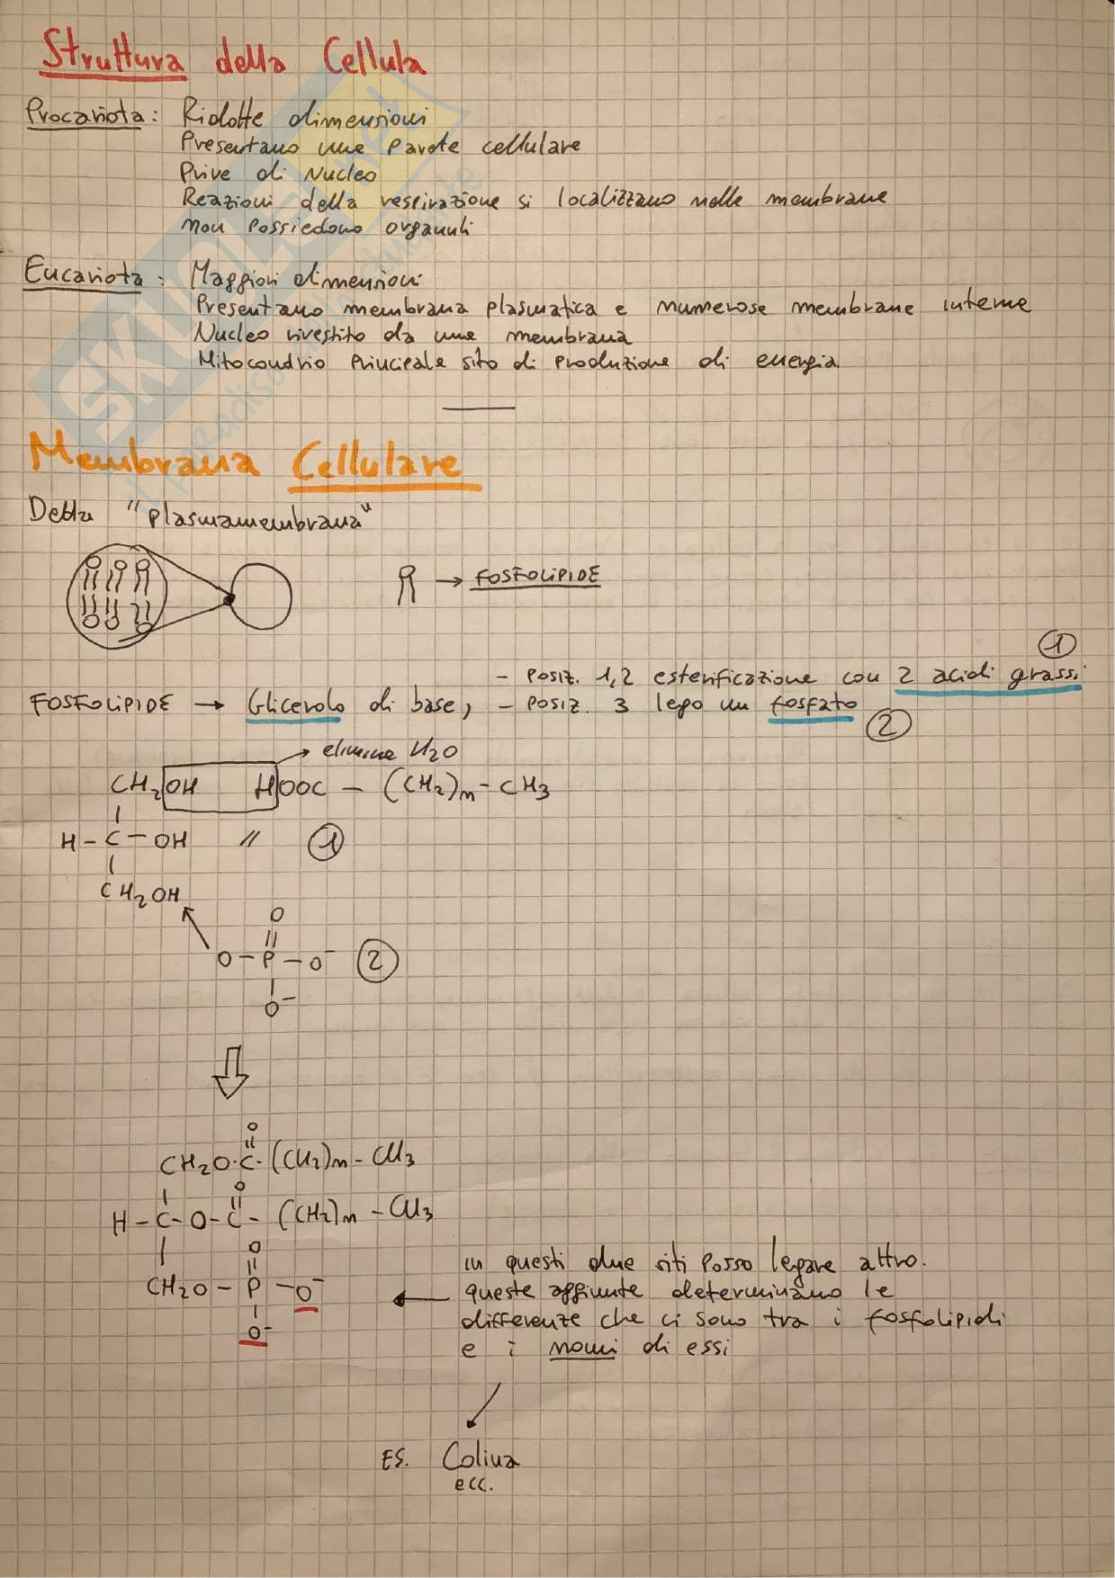 Struttura della Cellula
Procariota: Ridotte dimensioni
Presentano una parete cellulare
Prive di Nucleo
Reazioni della respirazione si localizzano nelle membrane
non possiedono organuli
Eucariota: Maggiori dimensioni
Presentano membrana plasmatica e numerose membrane interne
Nucleo rivestito da una membrana
Mitocondrio principale sito di produzione di energia
Membrana Cellulare
Detta "plasmamembrana"
→ FOSFOLIPIDE
①
- Posiz. 1,2 esterificazione con 2 acidi grassi
FOSFOLIPIDE → Glicerolo di base, - Posiz. 3 lego un fosfato
②
→ elimina H2O
CH2OH HOOC - (CH2)n - CH3
H - C - OH // ①
CH2OH
O
O - P - O⁻ ②
O⁻
O
CH2O·C·(CH2)n - CH3
O
H - C - O - C - (CH2)n - CH3
O
CH2O - P - O⁻
O⁻
in questi due siti posso legare altro.
queste aggiunte determinano le
differenze che ci sono tra i fosfolipidi
e i nomi di essi
ES. Colina
ecc.